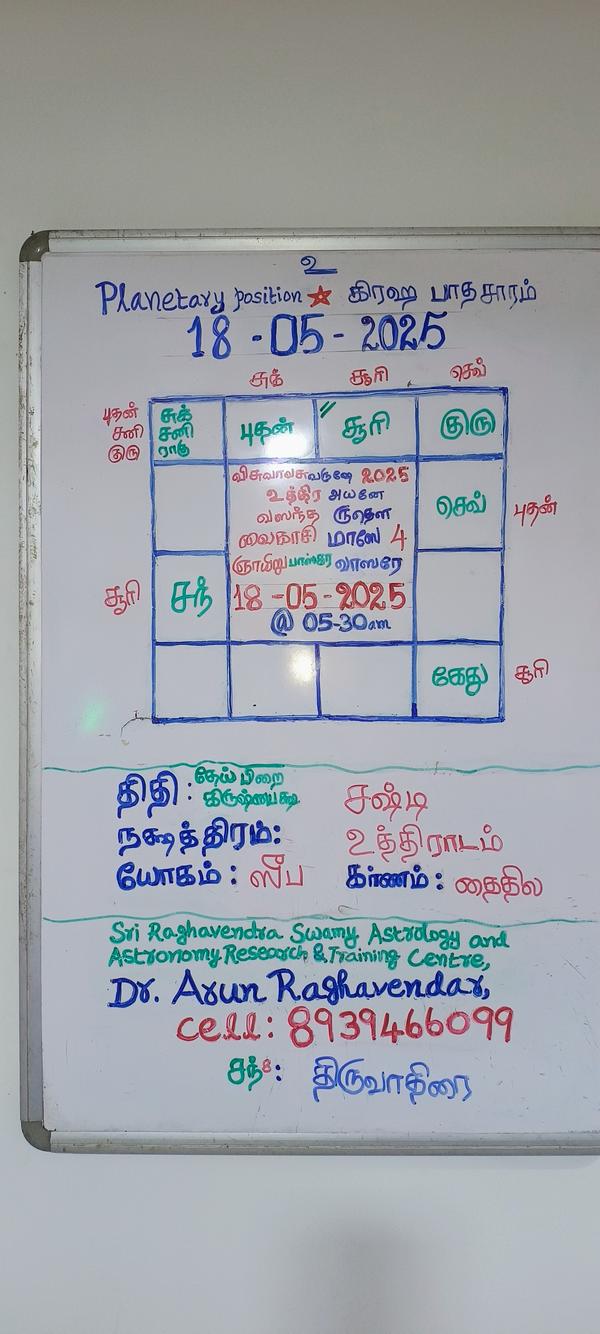 உ
Planetary position ☆ கிரஹ பாதசாரம்
18 - 05 - 2025
சுக் சூரி செவ்
புதன் சனி குரு
சுக் சனி ராகு
புதன்
சூரி
குரு
விசுவாவசுவருஷே 2025
உத்திர அயனே
வஸந்த ருதௌ
வைகாசி மாஸே 4
ஞாயிறு பாஸ்கர வாஸரே
18 - 05 - 2025
@ 05-30am
செவ் புதன்
சூரி சந்
கேது சூரி
திதி : தேய்பிறை
கிருஷ்ணபக்ஷ சஷ்டி
நக்ஷத்திரம்: உத்திராடம்
யோகம் : ஸீப கர்ணம் : தைதில
Sri Raghavendra Swamy Astrology and
Astronomy Research & Training Centre,
Dr. Arun Raghavendar,
cell: 8939466099
சந்8: திருவாதிரை